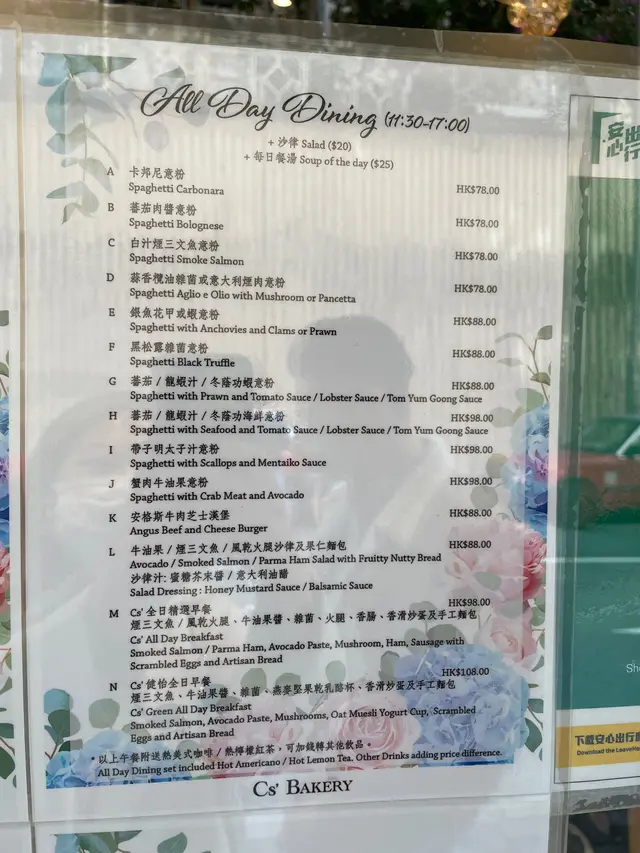 All Day Dining (11:30-17:00)
+ 沙律 Salad ($20)
+ 每日餐湯 Soup of the day ($25)
A 卡邦尼意粉
Spaghetti Carbonara HK$78.00
B 蕃茄肉醬意粉
Spaghetti Bolognese HK$78.00
C 白汁煙三文魚意粉
Spaghetti Smoke Salmon HK$78.00
D 蒜香欖油雜菌或意大利煙肉意粉
Spaghetti Aglio e Olio with Mushroom or Pancetta HK$78.00
E 銀魚花甲或蝦意粉 HK$88.00
Spaghetti with Anchovies and Clams or Prawn
F 黑松露雜菌意粉 HK$88.00
Spaghetti Black Truffle
G 蕃茄 / 龍蝦汁 / 冬蔭功蝦意粉 HK$88.00
Spaghetti with Prawn and Tomato Sauce / Lobster Sauce / Tom Yum Goong Sauce
H 蕃茄 / 龍蝦汁 / 冬蔭功海鮮意粉 HK$98.00
Spaghetti with Seafood and Tomato Sauce / Lobster Sauce / Tom Yum Goong Sauce
I 帶子明太子汁意粉 HK$98.00
Spaghetti with Scallops and Mentaiko Sauce
J 蟹肉牛油果意粉 HK$98.00
Spaghetti with Crab Meat and Avocado
K 安格斯牛肉芝士漢堡 HK$88.00
Angus Beef and Cheese Burger
L 牛油果 / 煙三文魚 / 風乾火腿沙律及果仁麵包 HK$88.00
Avocado / Smoked Salmon / Parma Ham Salad with Fruitty Nutty Bread
沙律汁: 蜜糖芥末醬 / 意大利油醋
Salad Dressing : Honey Mustard Sauce / Balsamic Sauce
M Cs' 全日精選早餐 HK$98.00
煙三文魚 / 風乾火腿、牛油果醬、雜菌、火腿、香腸、香滑炒蛋及手工麵包
Cs' All Day Breakfast
Smoked Salmon / Parma Ham, Avocado Paste, Mushroom, Ham, Sausage with
Scrambled Eggs and Artisan Bread
N Cs' 健怡全日早餐 HK$108.00
煙三文魚、牛油果醬、雜菌、燕麥堅果乾乳酪杯、香滑炒蛋及手工麵包
Cs' Green All Day Breakfast
Smoked Salmon, Avocado Paste, Mushrooms, Oat Muesli Yogurt Cup, Scrambled
Eggs and Artisan Bread
* 以上午餐附送熱美式咖啡 / 熱檸檬紅茶，可加錢轉其他飲品。
All Day Dining set included Hot Americano / Hot Lemon Tea, Other Drinks adding price difference.
Cs' BAKERY
安心出行
下載安心出行
Download the LeaveHo